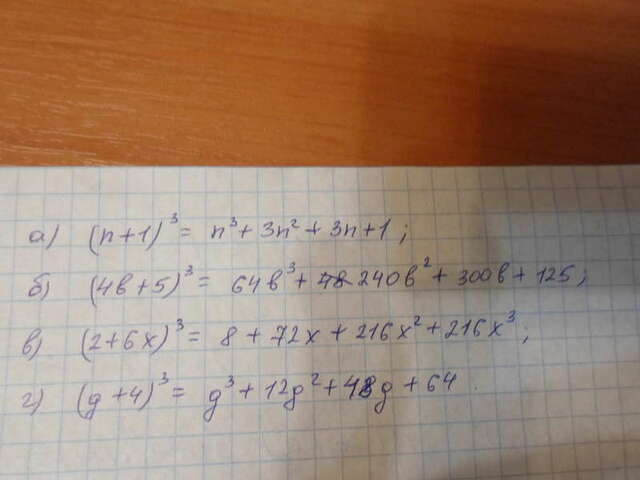 а) (n+1)³ = n³ + 3n² + 3n + 1;
б) (4в+5)³ = 64в³ + 240в² + 300в + 125;
в) (2+6x)³ = 8 + 72x + 216x² + 216x³;
г) (g+4)³ = g³ + 12g² + 48g + 64.